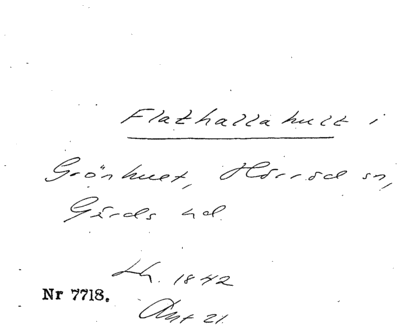 Flathallahult i
Grönhult, Hörröd sn,
Gärds hd.
Lh. 1842
Nr 7718.
Akt 21.